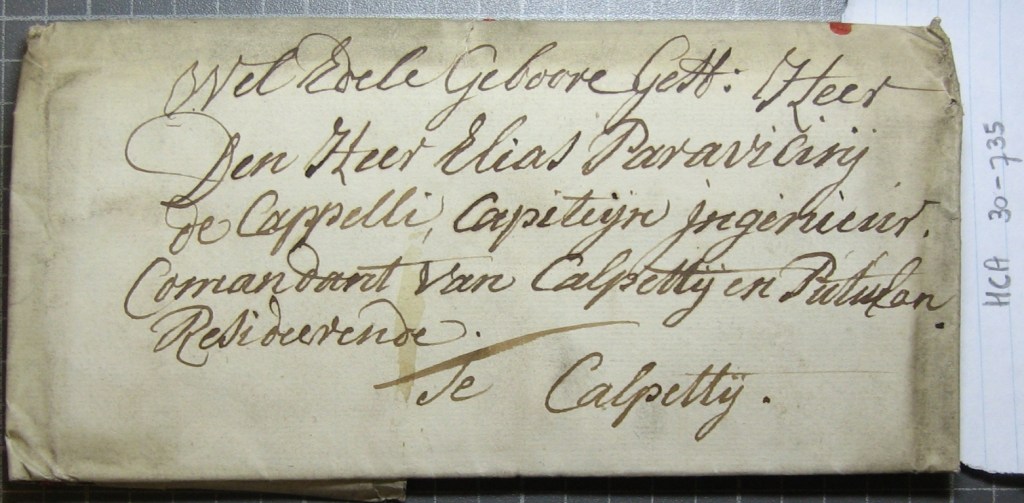 Wel Edele Geboore Gestr: Heer
Den Heer Elias Paravicinij
de Cappelli, Capiteijn jngenieur.
Comandant van Calpettij en Putulan.
Resideerende.
Te Calpettij.
HCA 30-735